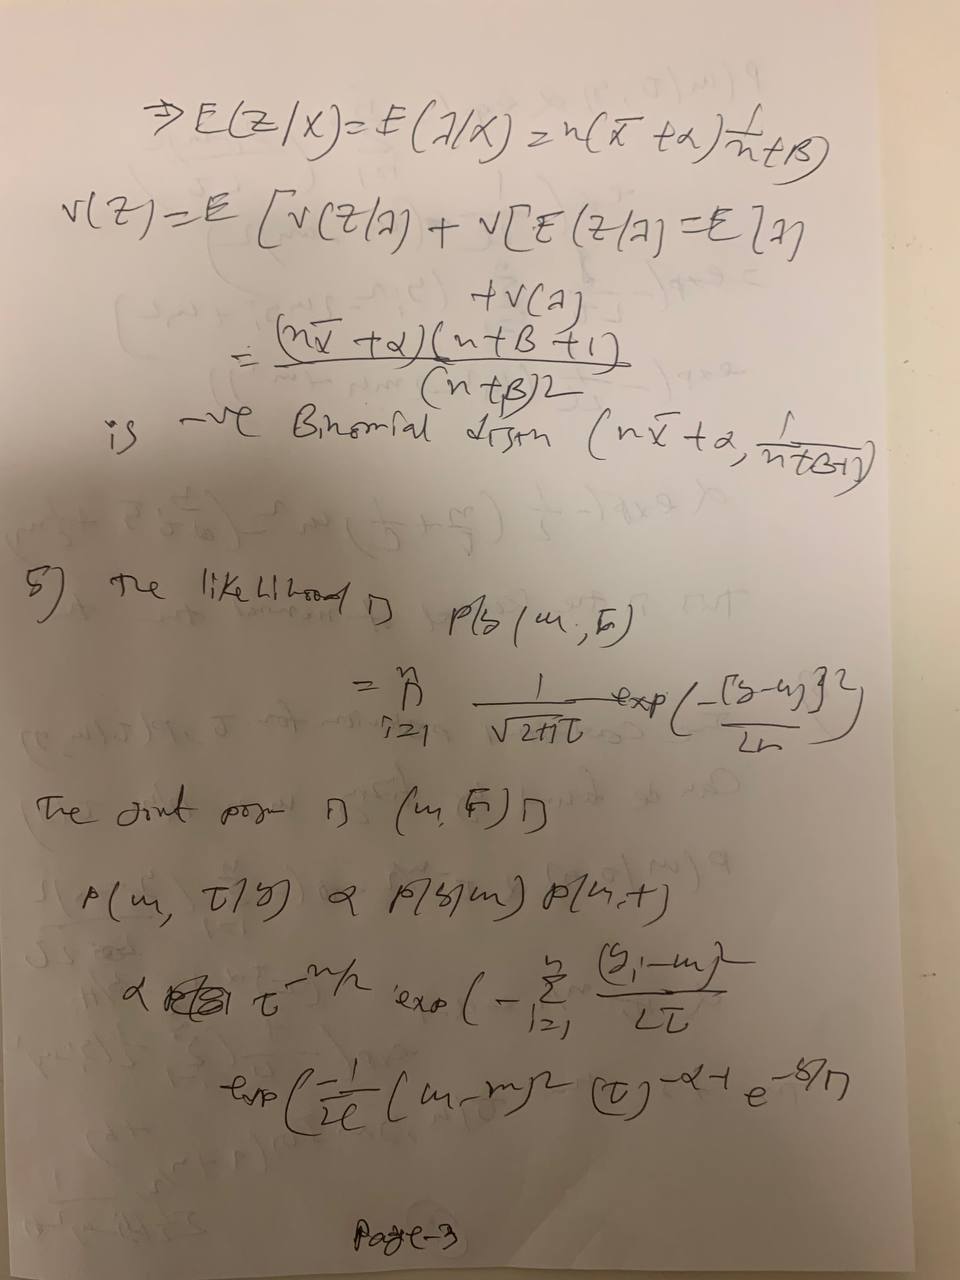 ⇒ E(Z/X) = E(λ/x) = n(x̄ + α) 1/n+β)
V(Z) = E [V(Z/λ) + V[E(Z/λ] = E[λ]
+ V(λ)
= (nx̄ + α)(n+β+1)/(n+β)2
is -ve Binomial distn (nx̄ + α, 1/n+β+1)
5) The likelihood is P(y/m, τ)
= n Π i=1 1/√2πτ exp(-[y-m]}2/2n)
The joint (m, τ) is
P(m, τ/y) α P(y/m) P(m,t)
α τ-n/2 exp(- n Σ i=1 (yi-m)2/2τ
exp(-1/2c (m-m)2 (τ)-α-1 e-δ/n
Page-3